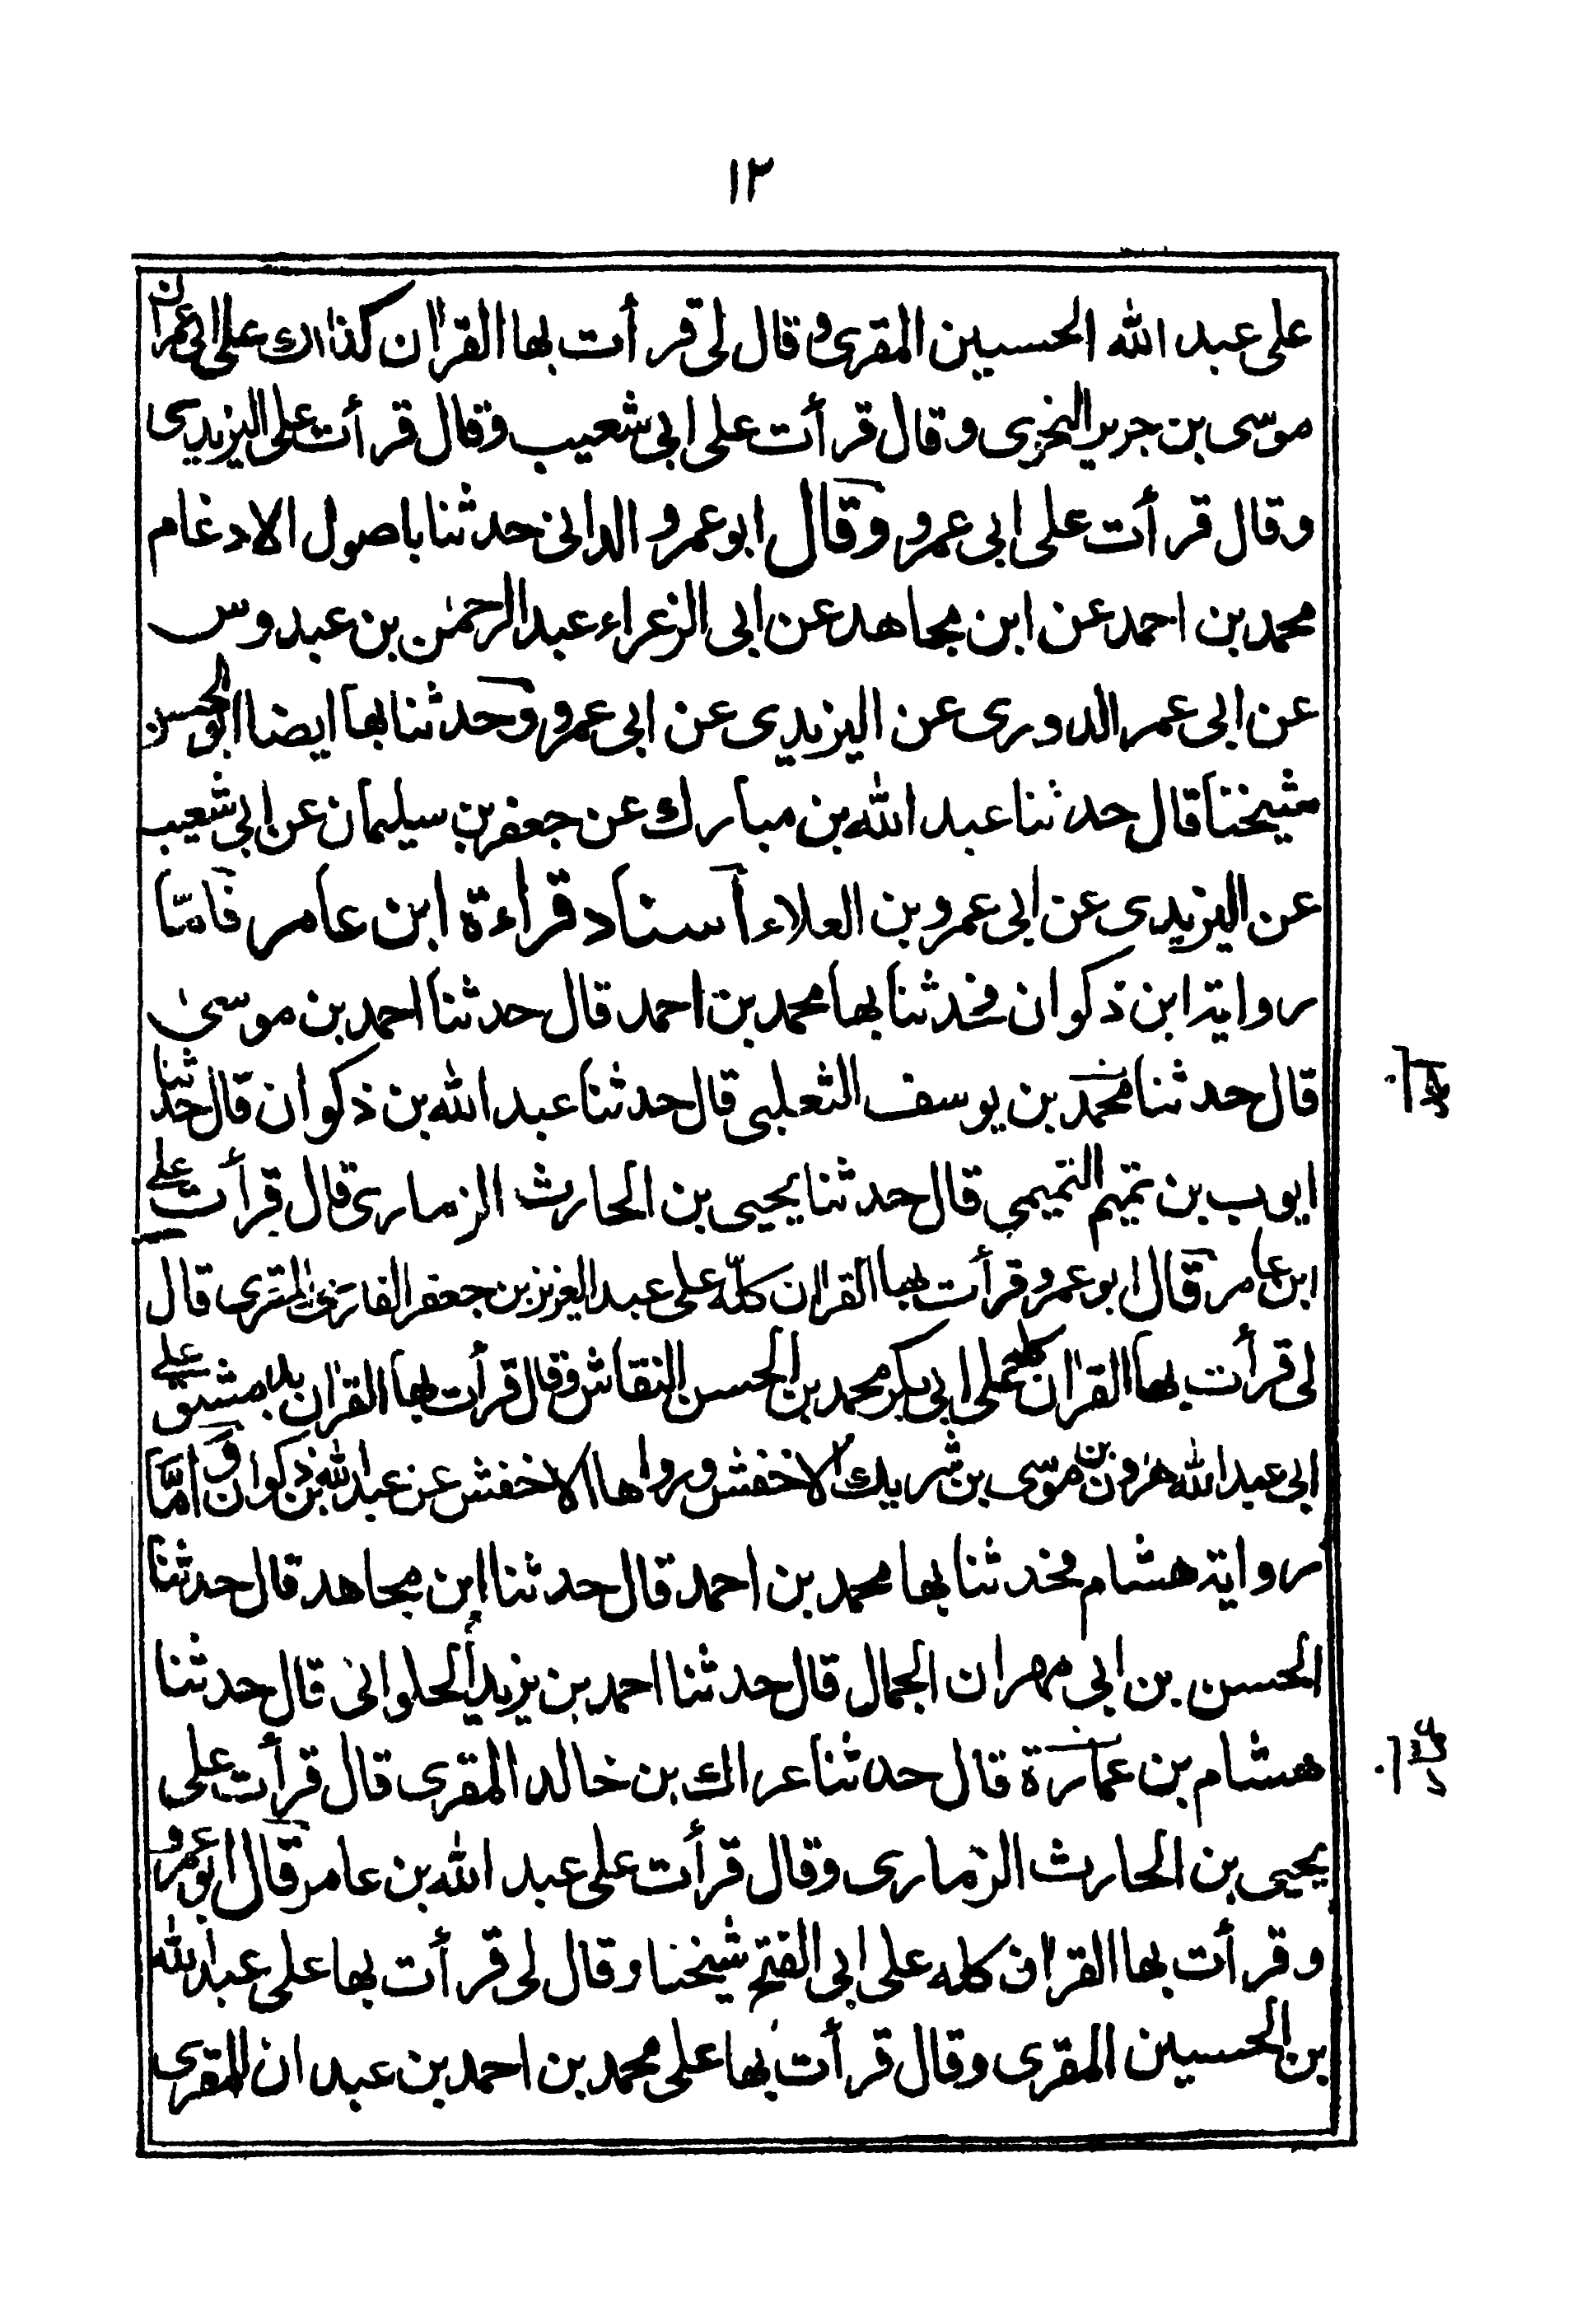 ١٣
على عبد الله الحسين المقرى وقال لى قرأت بها القران كذلك على ابى عمران
موسى بن جرير النحوى وقال قرأت على ابى شعيب وقال قرأت على اليزيدى
وقال قرأت على ابى عمرو وقال ابو عمرو الدانى حدثنا باصول الادغام
محمد بن احمد عن ابن مجاهد عن ابى الزعراء عبد الرحمن بن عبدوس
عن ابى عمر الدورى عن اليزيدى عن ابى عمرو وحدثنا بها ايضا ابو الحسن
شيخنا قال حدثنا عبد الله بن مبارك عن جعفر بن سليمان عن ابى شعيب
عن اليزيدى عن ابى عمرو بن العلاء اسناد قراءة ابن عامر فامّا
رواية ابن ذكوان فحدثنا بها محمد بن احمد قال حدثنا احمد بن موسى
قال حدثنا محمد بن يوسف الثعلبى قال حدثنا عبد الله بن ذكوان قال حدثنا
ايوب بن تميم التميمى قال حدثنا يحيى بن الحارث الزمارى قال قرأت على
ابن عامر قال ابو عمرو قرأت بها القران كلّه على عبد العزيز بن جعفر الفارسى المقرى قال
لى قرأت بها القران كله على ابى بكر محمد بن الحسن النقاش وقال قرأت بها القران بدمشق على
ابى عبد الله هرون بن موسى بن شريك الاخفش ورواها الاخفش عن عبد الله بن ذكوان وامّا
رواية هشام فحدثنا بها محمد بن احمد قال حدثنا ابن مجاهد قال حدثنا
الحسن بن ابى مهران الجمال قال حدثنا احمد بن يزيد الحلوانى قال حدثنا
هشام بن عمارة قال حدثنا عراك بن خالد المقرى قال قرأت على
يحيى بن الحارث الزمارى وقال قرأت على عبد الله بن عامر قال ابو عمرو
وقرأت بها القران كله على ابى الفتح شيخنا وقال لى قرأت بها على عبد الله
بن الحسين المقرى وقال قرأت بها على محمد بن احمد بن عبدان المقرى